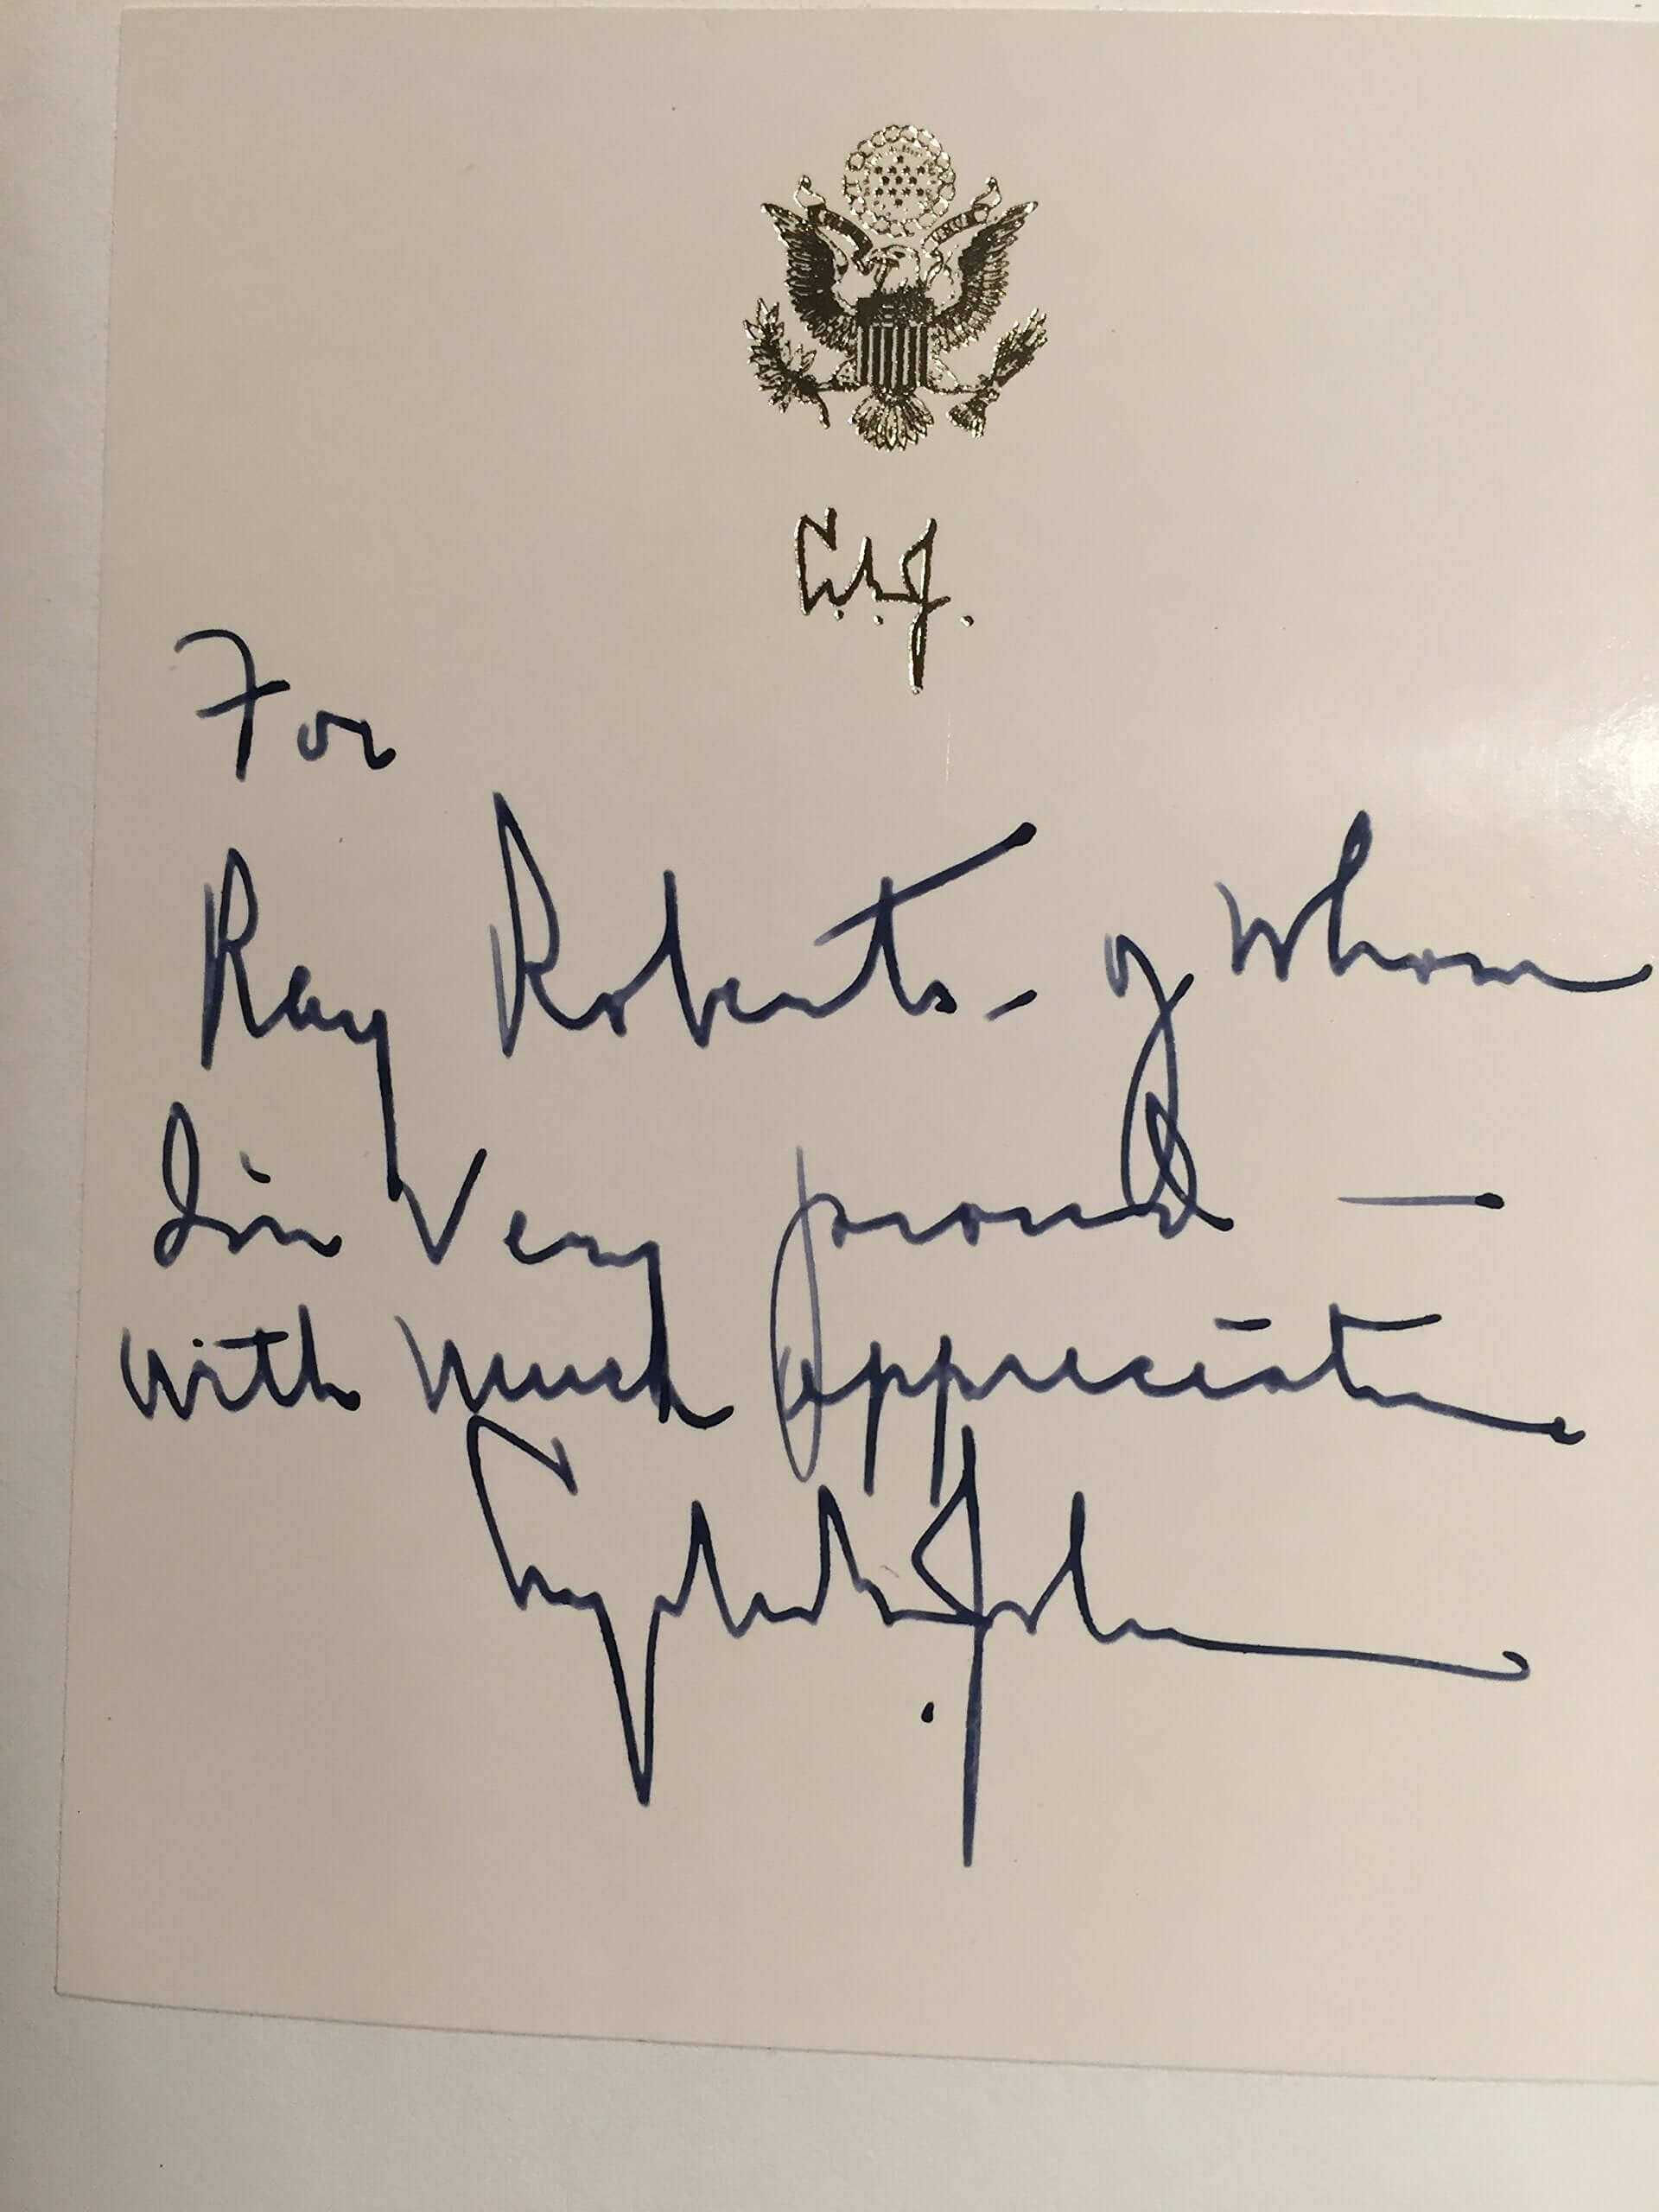 L.B.J.
For
Ray Roberts - of whom
I'm very proud —
with much appreciation
Lyndon B. Johnson